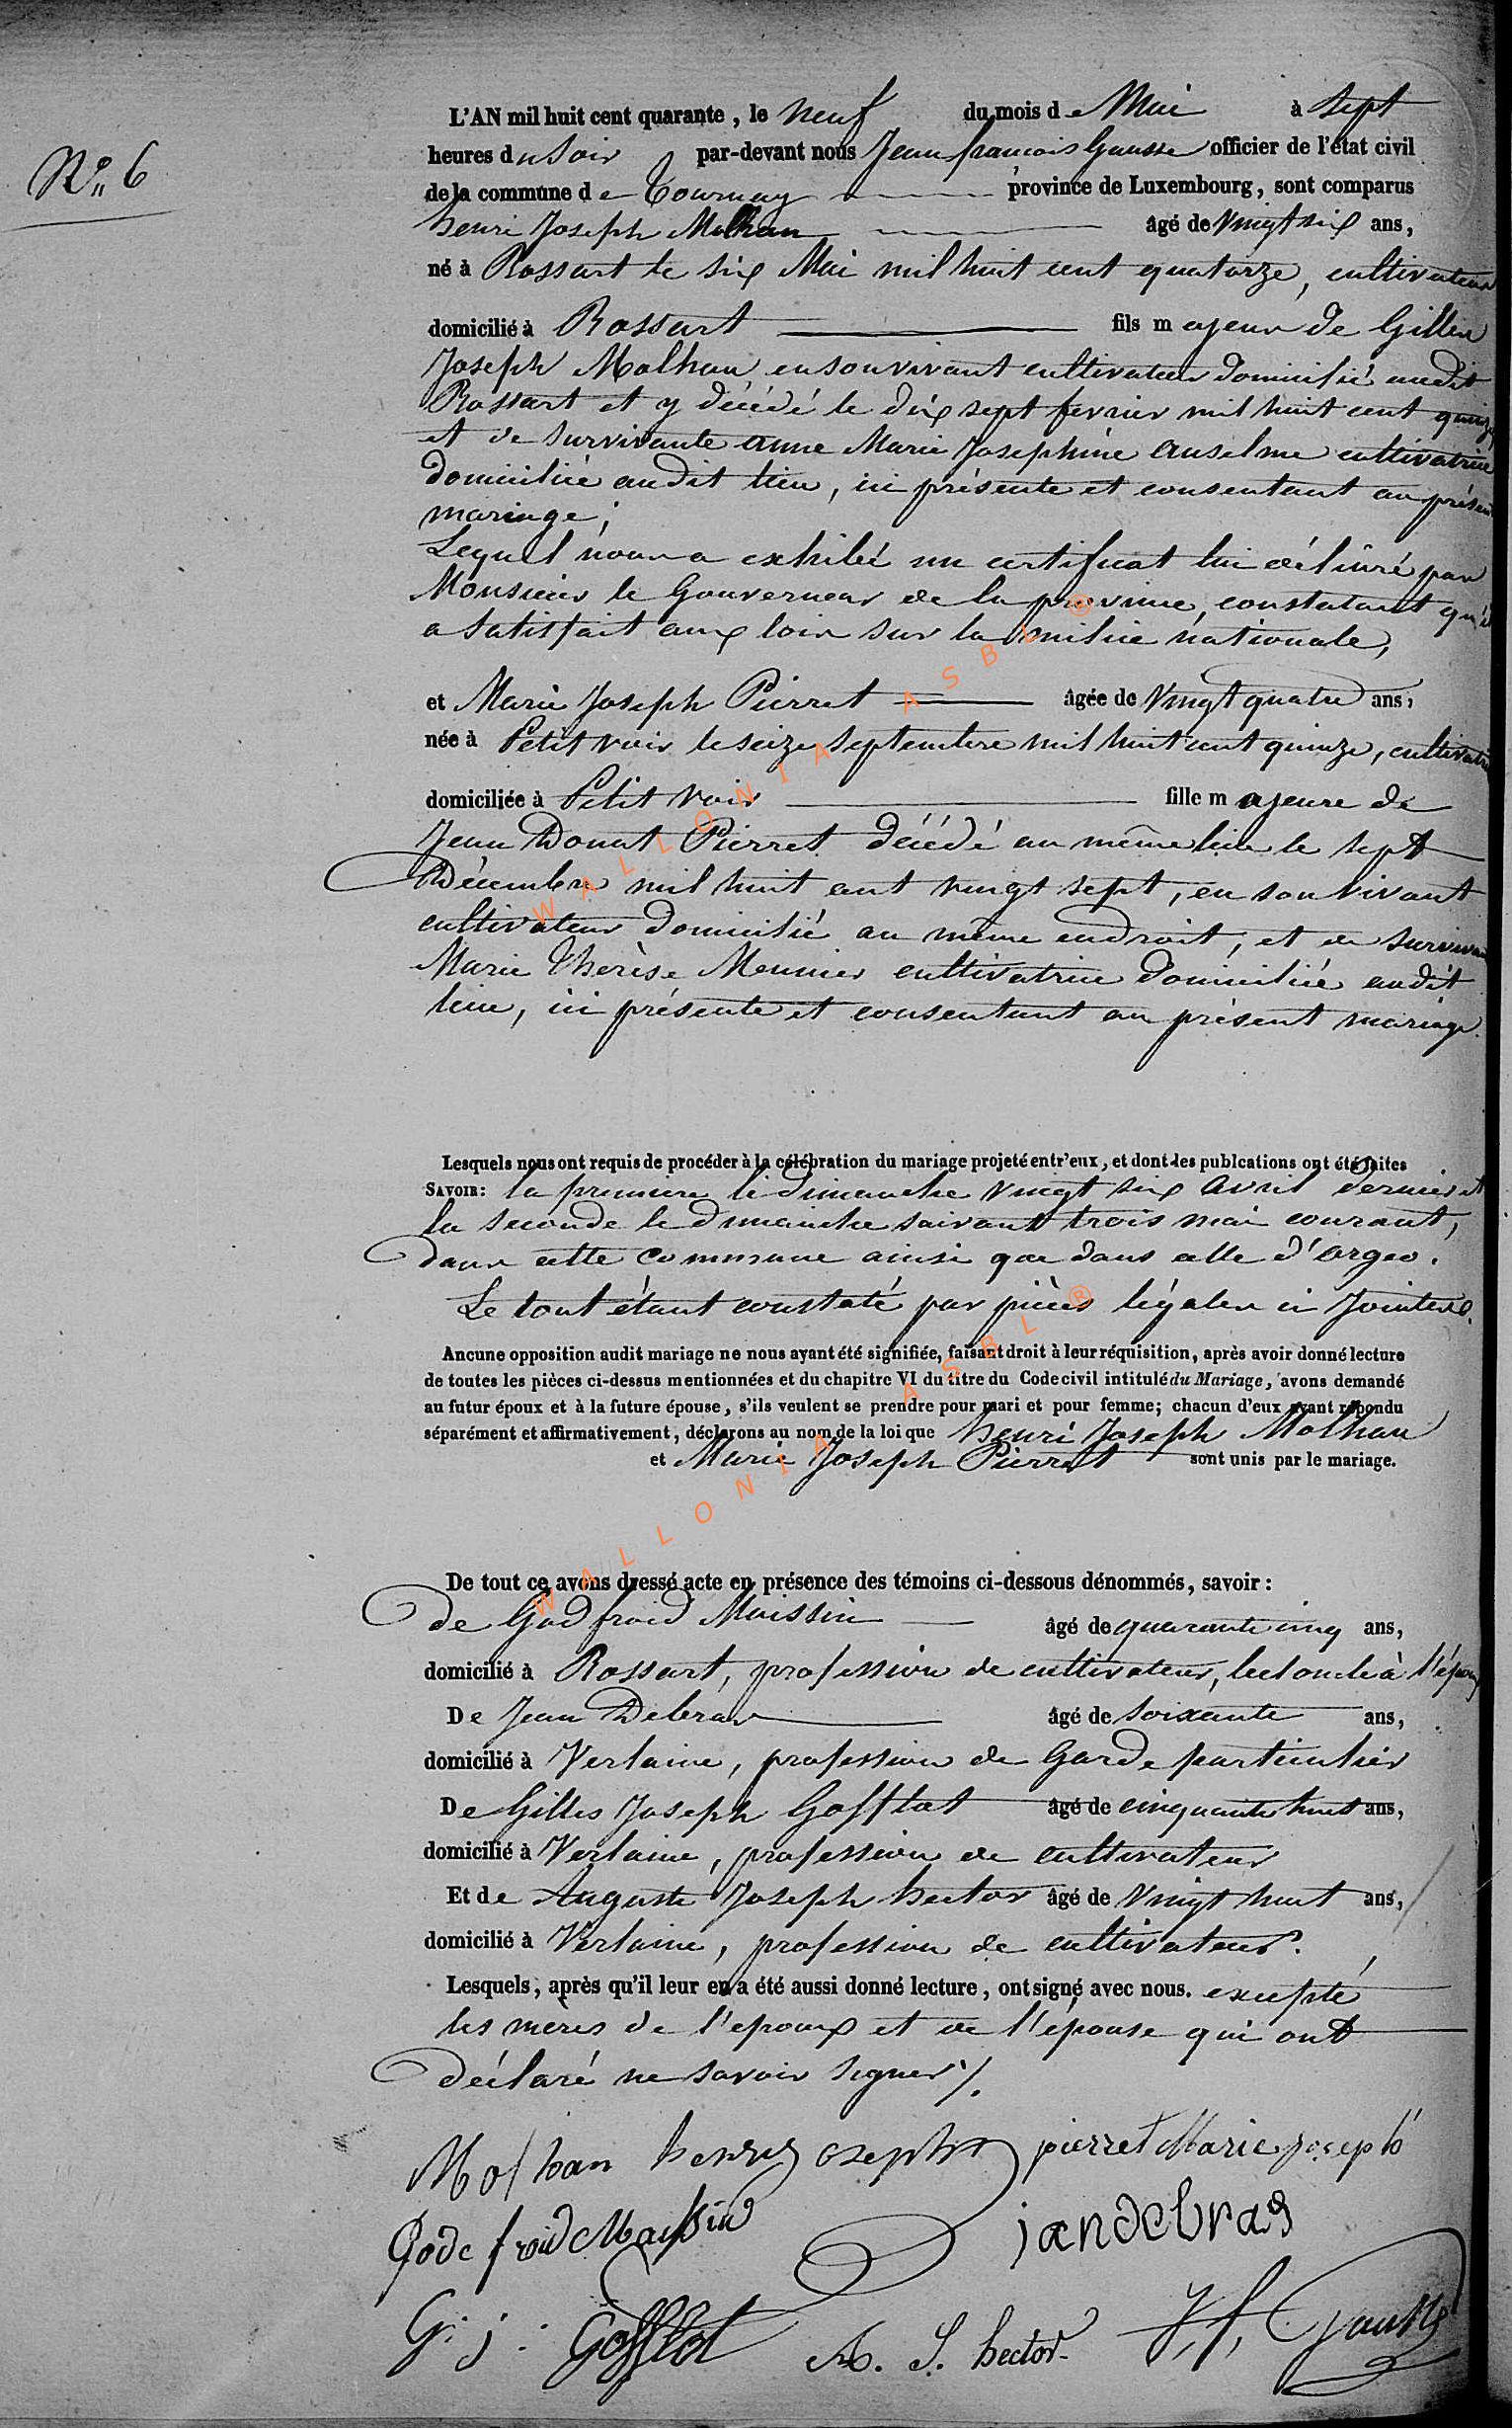 N° 6
L'AN mil huit cent quarante, le neuf du mois de Mai à sept
heures du soir par-devant nous Jean françois Gausse officier de l'état civil
de la commune de Tournay province de Luxembourg, sont comparus
henri Joseph Molhan âgé de Vingt six ans,
né à Rossart le six Mai mil huit cent quatorze, cultivateur
domicilié à Rossart fils majeur de Gilles
Joseph Molhan en son vivant cultivateur domicilié audit
Rossart et y décédé le dix sept fevrier mil huit cent quinze
et de survivante anne Marie Josephine Anselme cultivatrice
domiciliée audit lieu, ici présente et consentant au présent
mariage;
Lequel nous a exhibé un certificat lui délivré par
Monsieur le Gouverneur de la province, constatant qu'il
a satisfait aux loix sur la milice nationale,
et Marie Joseph Pierret âgée de Vingt quatre ans,
née à Petit voir le seize septembre mil huit cent quinze, cultivatrice
domiciliée à Petit Voir fille majeure de
Jean Donat Pierret décédé au même lieu le sept
Décembre mil huit cent vingt sept, en son vivant
cultivateur domicilié au même endroit, et de survivante
Marie Thérèse Meunier cultivatrice domiciliée audit
lieu, ici présente et consentant au présent mariage.
Lesquels nous ont requis de procéder à la célébration du mariage projeté entr'eux, et dont les publcations ont été faites
SAVOIR: la premiere le dimanche vingt six avril dernier et
la seconde le dimanche suivant trois mai courant,
dans cette commune ainsi que dans celle d'orgeo.
Le tout étant constaté par pièces légales ci Jointes.
Ancune opposition audit mariage ne nous ayant été signifiée, faisant droit à leur réquisition, après avoir donné lecture
de toutes les pièces ci-dessus mentionnées et du chapitre VI du titre du Code civil intitulé du Mariage, avons demandé
au futur époux et à la future épouse, s'ils veulent se prendre pour mari et pour femme; chacun d'eux ayant répondu
séparément et affirmativement, déclarons au nom de la loi que henri Joseph Molhan
et Marie Joseph Pierret sont unis par le mariage.
De tout ce avons dressé acte en présence des témoins ci-dessous dénommés, savoir:
de Godfroid Maissin âgé de quarante cinq ans,
domicilié à Rossart, profession de cultivateur, bel oncle à l'époux
De Jean Debras âgé de soixante ans,
domicilié à Verlaine, profession de Garde particulier
De Gilles Joseph Gofflot âgé de cinquante huit ans,
domicilié à Verlaine, profession de cultivateur
Et de Auguste Joseph hector âgé de Vingt huit ans,
domicilié à Verlaine, profession de cultivateur.
Lesquels, après qu'il leur en a été aussi donné lecture, ont signé avec nous. excepté
les mères de l'epoux et de l'épouse qui ont
déclaré ne savoir signer /.
Molhan henry oseph pierret Marie joseph
Gode froid Maissin jandebras
G: j: Gofflot A. J. hector J, f, Gausse
WALLONIA ASBL ®
WALLONIA ASBL ®